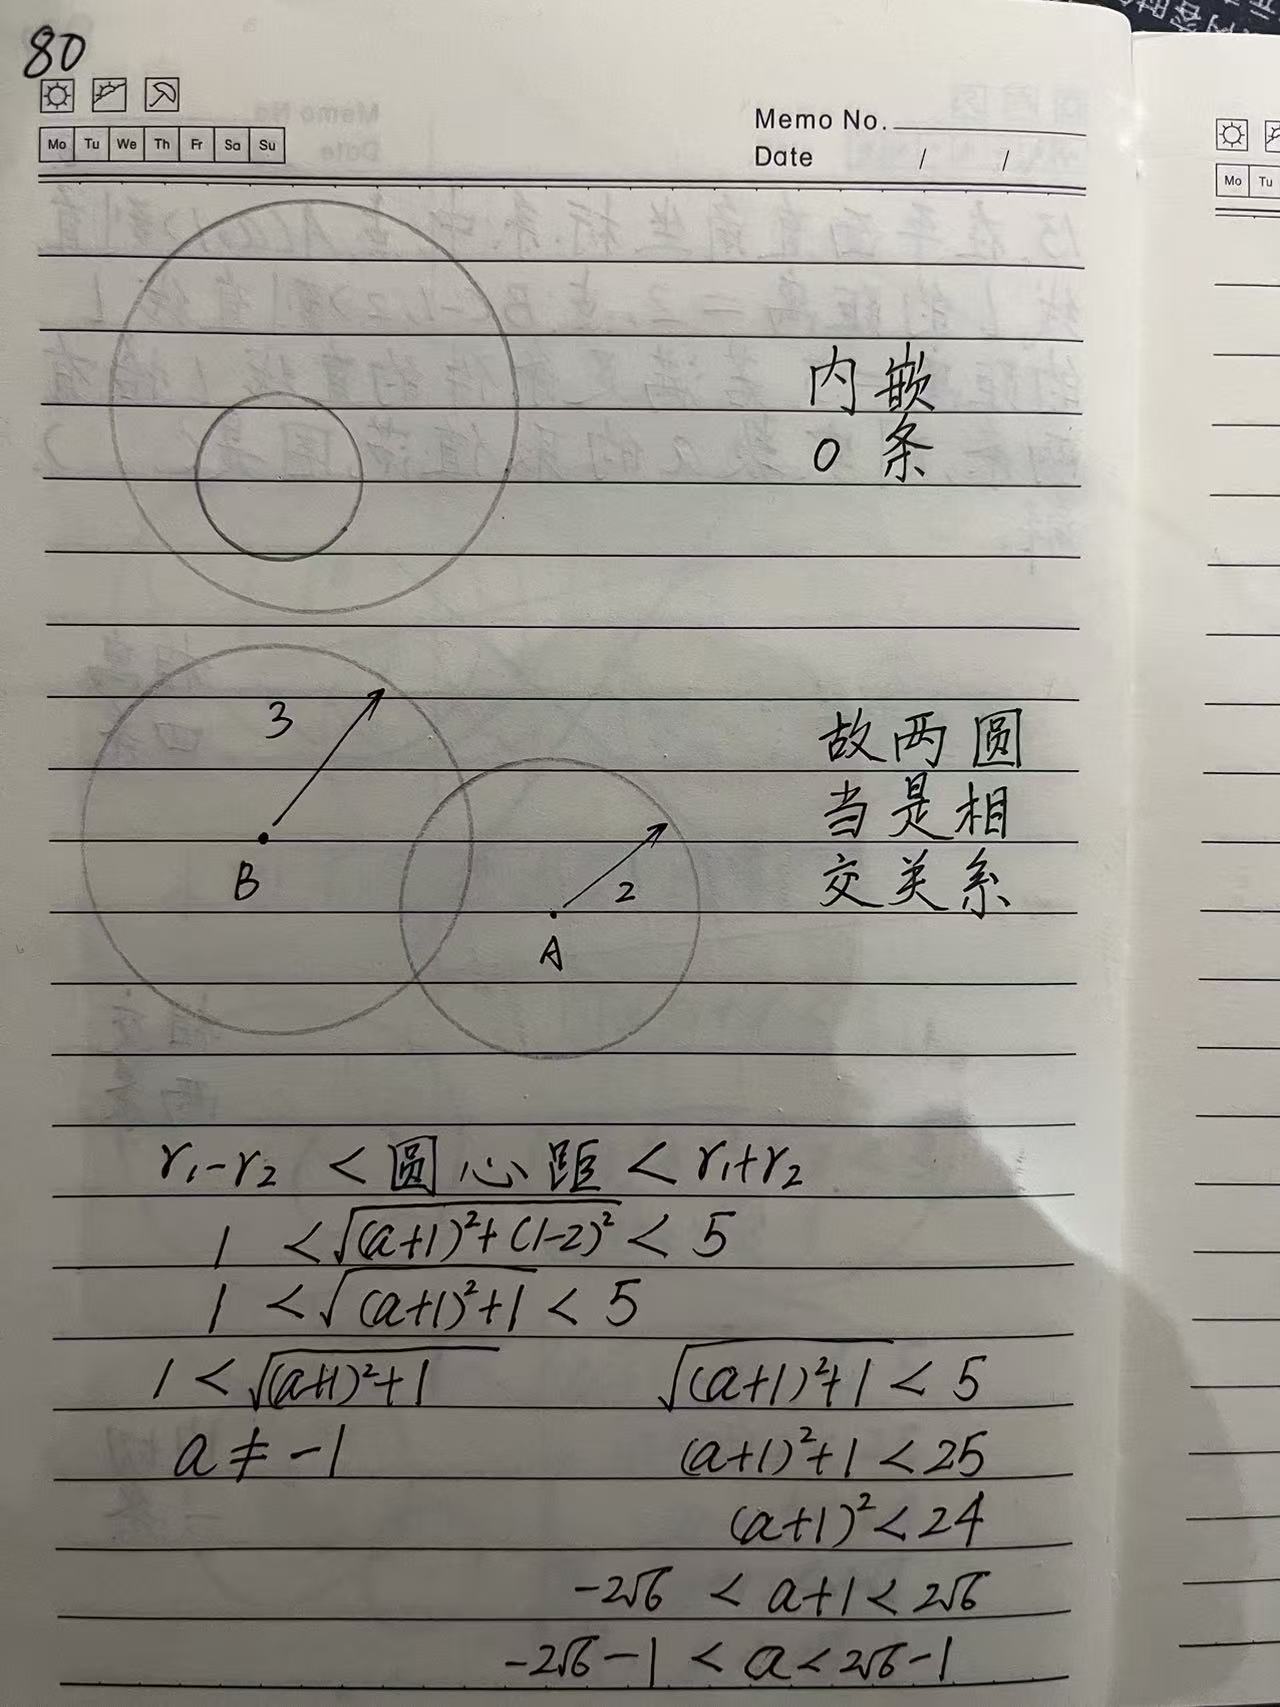 80
Mo Tu We Th Fr Sa Su
Memo No.
Date / /
内嵌
0条
3
B
2
A
故两圆
当是相
交关系
r₁-r₂ < 圆心距 < r₁+r₂
1 < √(a+1)²+(1-2)² < 5
1 < √(a+1)²+1 < 5
1 < √(a+1)²+1 √(a+1)²+1 < 5
a ≠ -1 (a+1)²+1 < 25
(a+1)² < 24
-2√6 < a+1 < 2√6
-2√6-1 < a < 2√6-1
Mo Tu